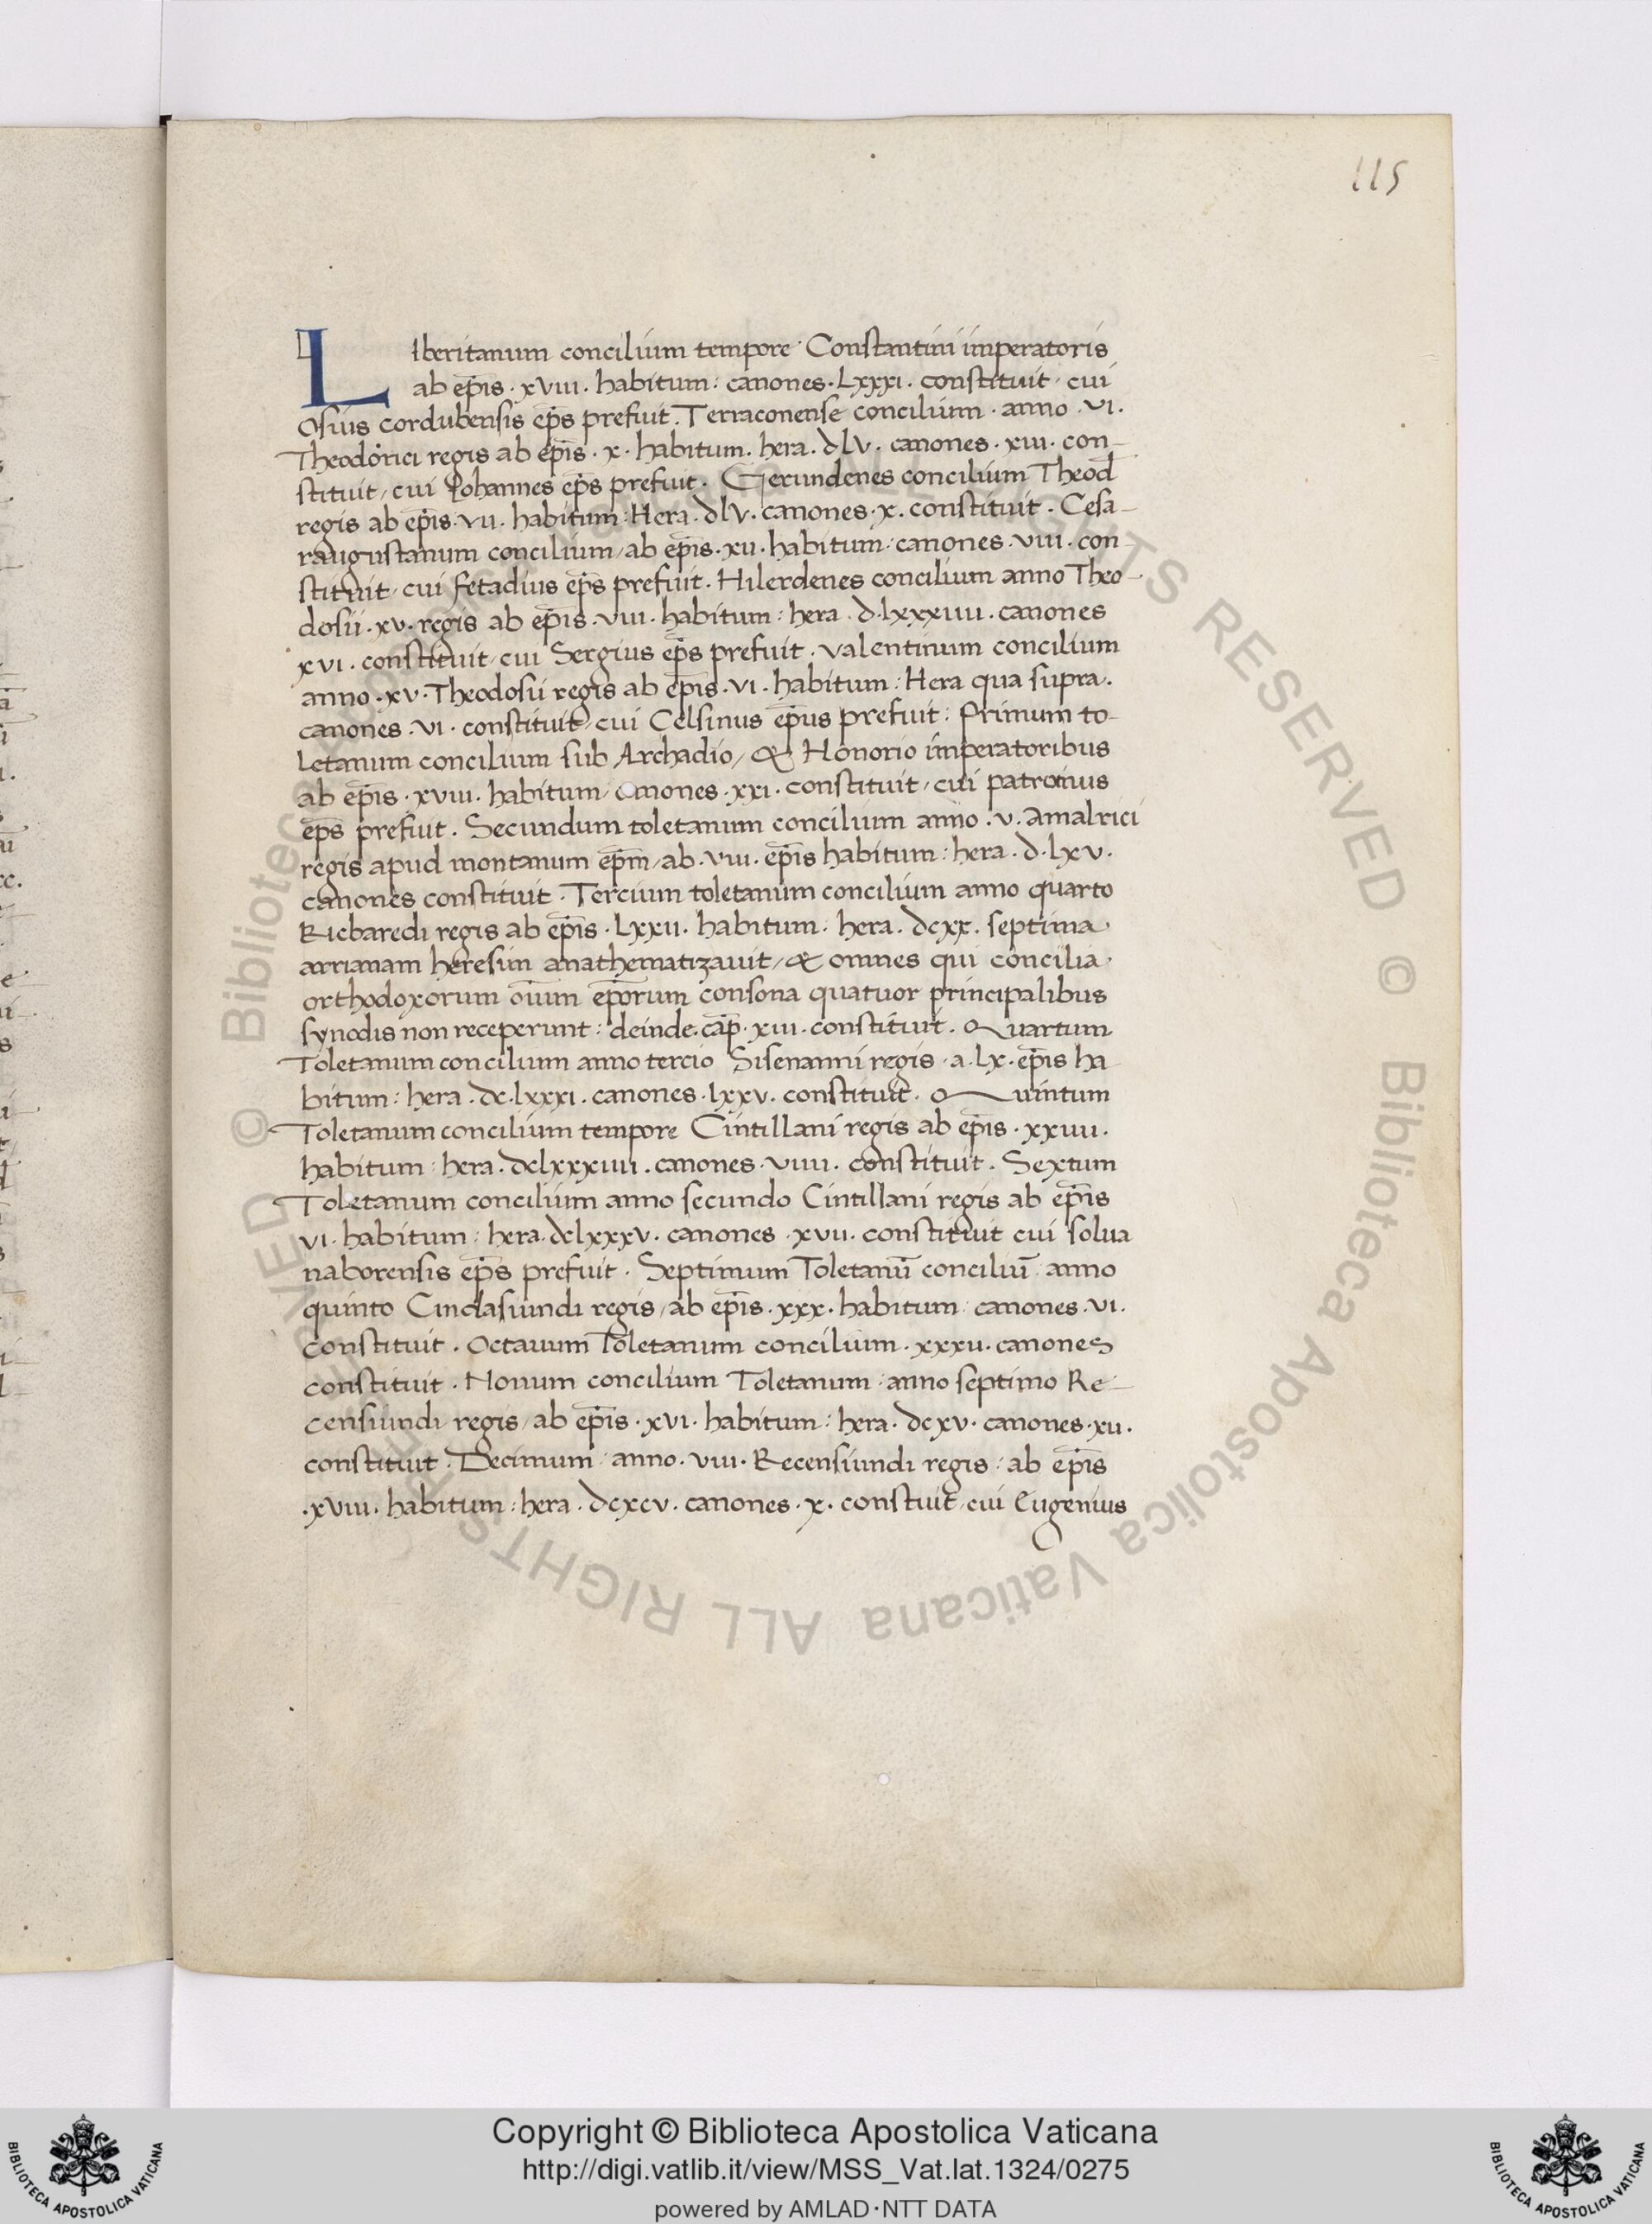 115
Liberitanum concilium tempore Constantini imperatoris
ab ep̄is · xviii · habitum : canones · Lxxxi · constituit · cui
Osius cordubensis ep̄s prefuit . Terraconense concilium · anno · vi ·
Theodorici regis ab ep̄is · x · habitum . hera . dlv . canones · xiii · con-
stituit / cui Iohannes ep̄s prefuit . Gerundenes concilium Theod̄
regis ab ep̄is · vii · habitum : Hera . dlv . canones · x . constituit . Cesa-
raugustanum concilium / ab ep̄is · xii · habitum : canones · viii · con-
stituit / cui fetadius ep̄s prefuit . Hilerdenes concilium anno Theo-
dosii · xv · regis ab ep̄is · viii · habitum : hera . d . lxxxiiii . canones
xvi . constituit / cui Sergius ep̄s prefuit . valentinum concilium
anno · xv · Theodosii regis ab ep̄is · vi · habitum : Hera qua supra .
canones · vi · constituit / cui Celsinus ep̄us prefuit : Primum to-
letanum concilium sub Archadio / & Honorio imperatoribus
ab ep̄is · xviii · habitum / canones · xxi · constituit / cui patronus
ep̄s prefuit . Secundum toletanum concilium anno · v · amalrici
regis apud montanum ep̄m / ab · viii · ep̄is habitum : hera . d . lxv .
canones constituit . Tercium toletanum concilium anno quarto
Ricbaredi regis ab ep̄is · Lxxii · habitum : hera . dcxx . septima
arrianam heresim anathematizavit / & omnes qui concilia
orthodoxorum oīum ep̄orum consona quatuor principalibus
synodis non receperunt : deinde . cap̄ · xiii · constituit . Quartum
Toletanum concilium anno tercio Sisenanni regis · a · lx · ep̄is ha
bitum : hera . dc . lxxxi . canones · lxxv . constituit . Quintum
Toletanum concilium tempore Cintillani regis ab ep̄is · xxiiii .
habitum : hera . dclxxxiiii . canones · viiii . constituit . Sextum
Toletanum concilium anno secundo Cintillani regis ab ep̄is
vi · habitum : hera . dclxxxv . canones · xvii . constituit cui solua
naborensis ep̄s prefuit . Septimum Toletanū conciliū anno
quinto Cindasiundi regis / ab ep̄is · xxx · habitum : canones · vi .
constituit . Octauum Toletanum concilium · xxxii . canones
constituit . Nonum concilium Toletanum : anno septimo Re-
censiundi regis / ab ep̄is · xvi · habitum : hera . dcxv . canones · xii .
constituit . Decimum : anno . viii . Recensiundi regis : ab ep̄is
· xviii · habitum : hera . dcxcv . canones · x . constuit / cui Eugenius
© Biblioteca Apostolica Vaticana ALL RIGHTS RESERVED
Copyright © Biblioteca Apostolica Vaticana
http://digi.vatlib.it/view/MSS_Vat.lat.1324/0275
powered by AMLAD·NTT DATA
BIBLIOTECA APOSTOLICA VATICANA
BIBLIOTECA APOSTOLICA VATICANA